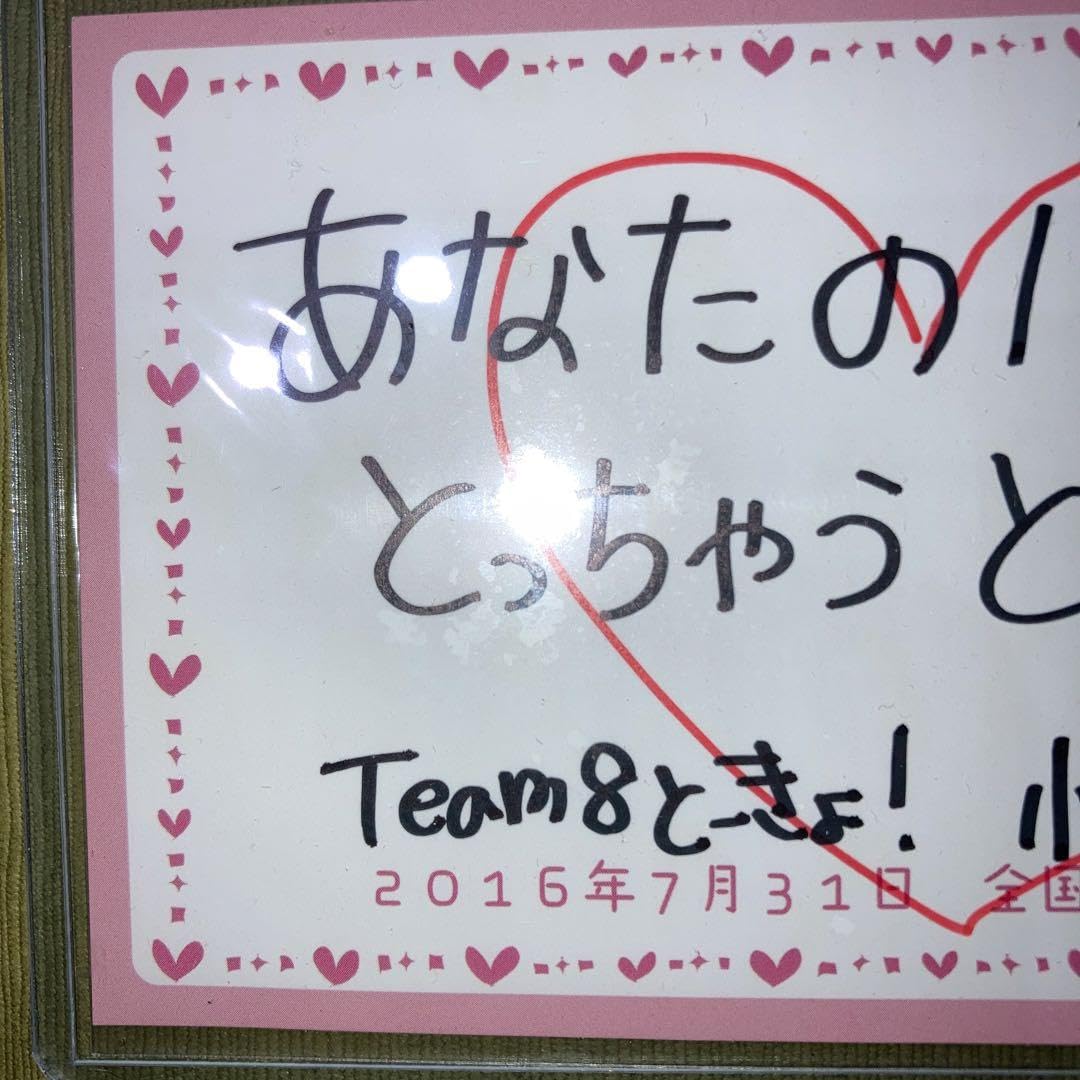 あなたの
とっちゃうと
Team8とーきょー!
2016年7月31日 全国